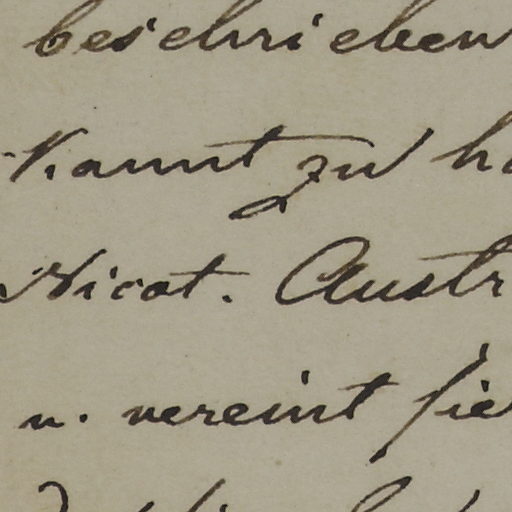 beschrieben
kannt zu ha
Nicot. Austr
u. vereint sie